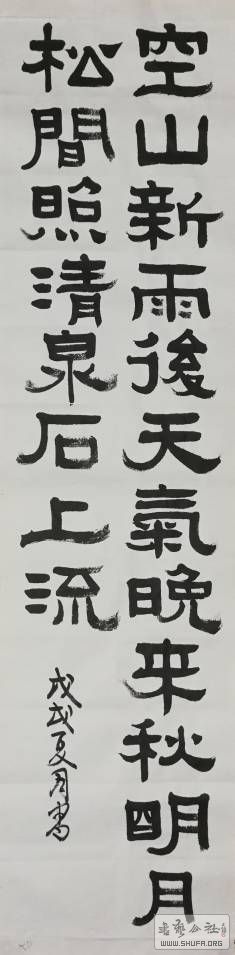 空山新雨後天氣晚来秋明月
松間照清泉石上流
戊戌夏月書
書藝公社
WWW.SHUFA.ORG